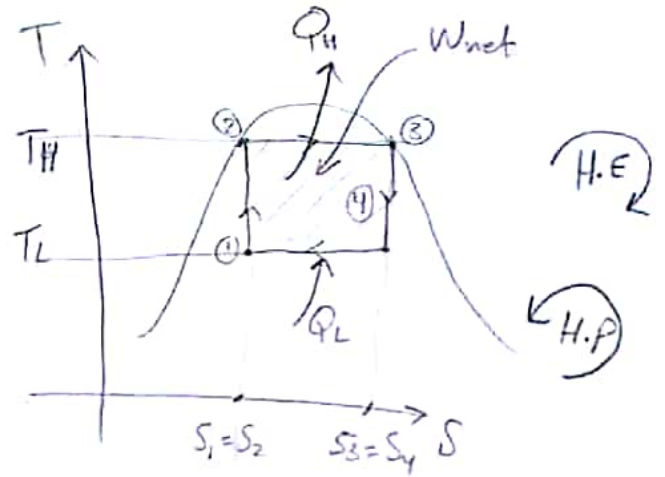 T
Q_H
Wnet
T_H
②
③
H.E
④
T_L
①
Q_L
H.P
S₁=S₂
S₃=S₄
S